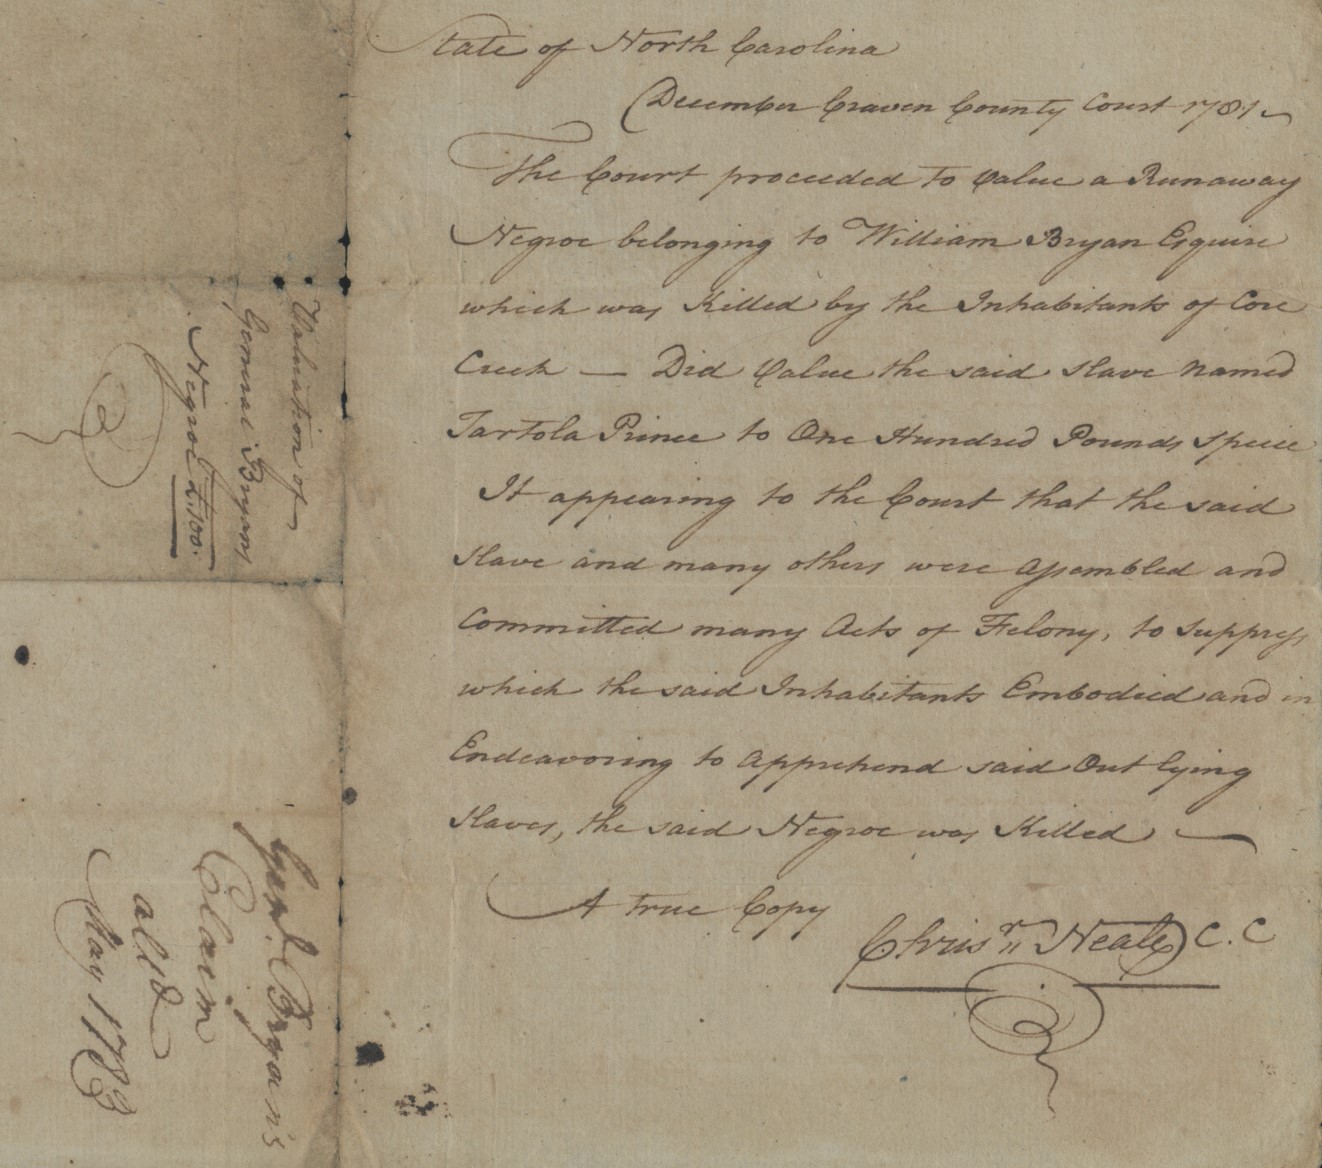 State of North Carolina
December Craven County Court 1781
The Court proceeded to Value a Runaway
Negroe belonging to William Bryan Esquire
which was Killed by the Inhabitants of Core
Creek — Did Value the said Slave Named
Tartola Prince to One Hundred Pounds Specie
It appearing to the Court that the said
Slave and many others were Assembled and
Committed many Acts of Felony, to suppress
which the said Inhabitants Embodied and in
Endeavoring to Apprehend said Out lying
Slaves, the said Negroe was Killed —
A True Copy
Chrisr. Neale C. C
Valuation of
General Bryans
Negroe £100.
Genl. Bryan's
Claim
alld
May 1783